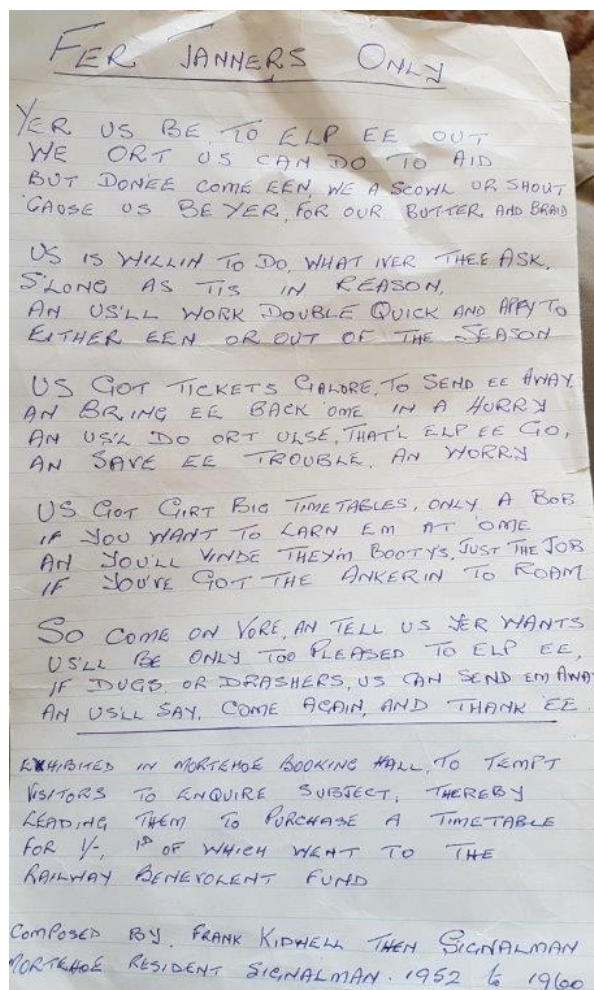 FER JANNERS ONLY
YER US BE TO ELP EE OUT
WE ORT US CAN DO TO AID
BUT DON'EE COME EEN, WE A SCOWL OR SHOUT
'CAUSE US BE YER, FOR OUR BUTTER AND BRAID
US IS WILLIN TO DO, WHAT IVER THEE ASK,
S'LONG AS TIS IN REASON,
AN US'LL WORK DOUBLE QUICK AND APPY TO
EITHER EEN OR OUT OF THE SEASON
US GOT TICKETS GALORE, TO SEND EE AWAY
AN BRING EE BACK 'OME IN A HURRY
AN US'L DO ORT ULSE, THAT'L ELP EE GO,
AN SAVE EE TROUBLE, AN WORRY
US GOT GIRT BIG TIMETABLES, ONLY A BOB
IF YOU WANT TO LARN EM AT 'OME
AN YOU'LL VINDE THEY'M BOOTY'S, JUST THE JOB
IF YOU'VE GOT THE ANKERIN TO ROAM
SO COME ON VORE, AN TELL US YER WANTS
US'LL BE ONLY TOO PLEASED TO ELP EE,
IF DUGS, OR DRASHERS, US CAN SEND EM AWA
AN US'LL SAY, COME AGAIN, AND THANK 'EE.
EXHIBITED IN MORTEHOE BOOKING HALL, TO TEMPT
VISITORS TO ENQUIRE SUBJECT, THEREBY
LEADING THEM TO PURCHASE A TIMETABLE
FOR 1/-, 1D OF WHICH WENT TO THE
RAILWAY BENEVOLENT FUND
COMPOSED BY. FRANK KIDWELL THEN SIGNALMAN
MORTEHOE RESIDENT SIGNALMAN. 1952 to 1960